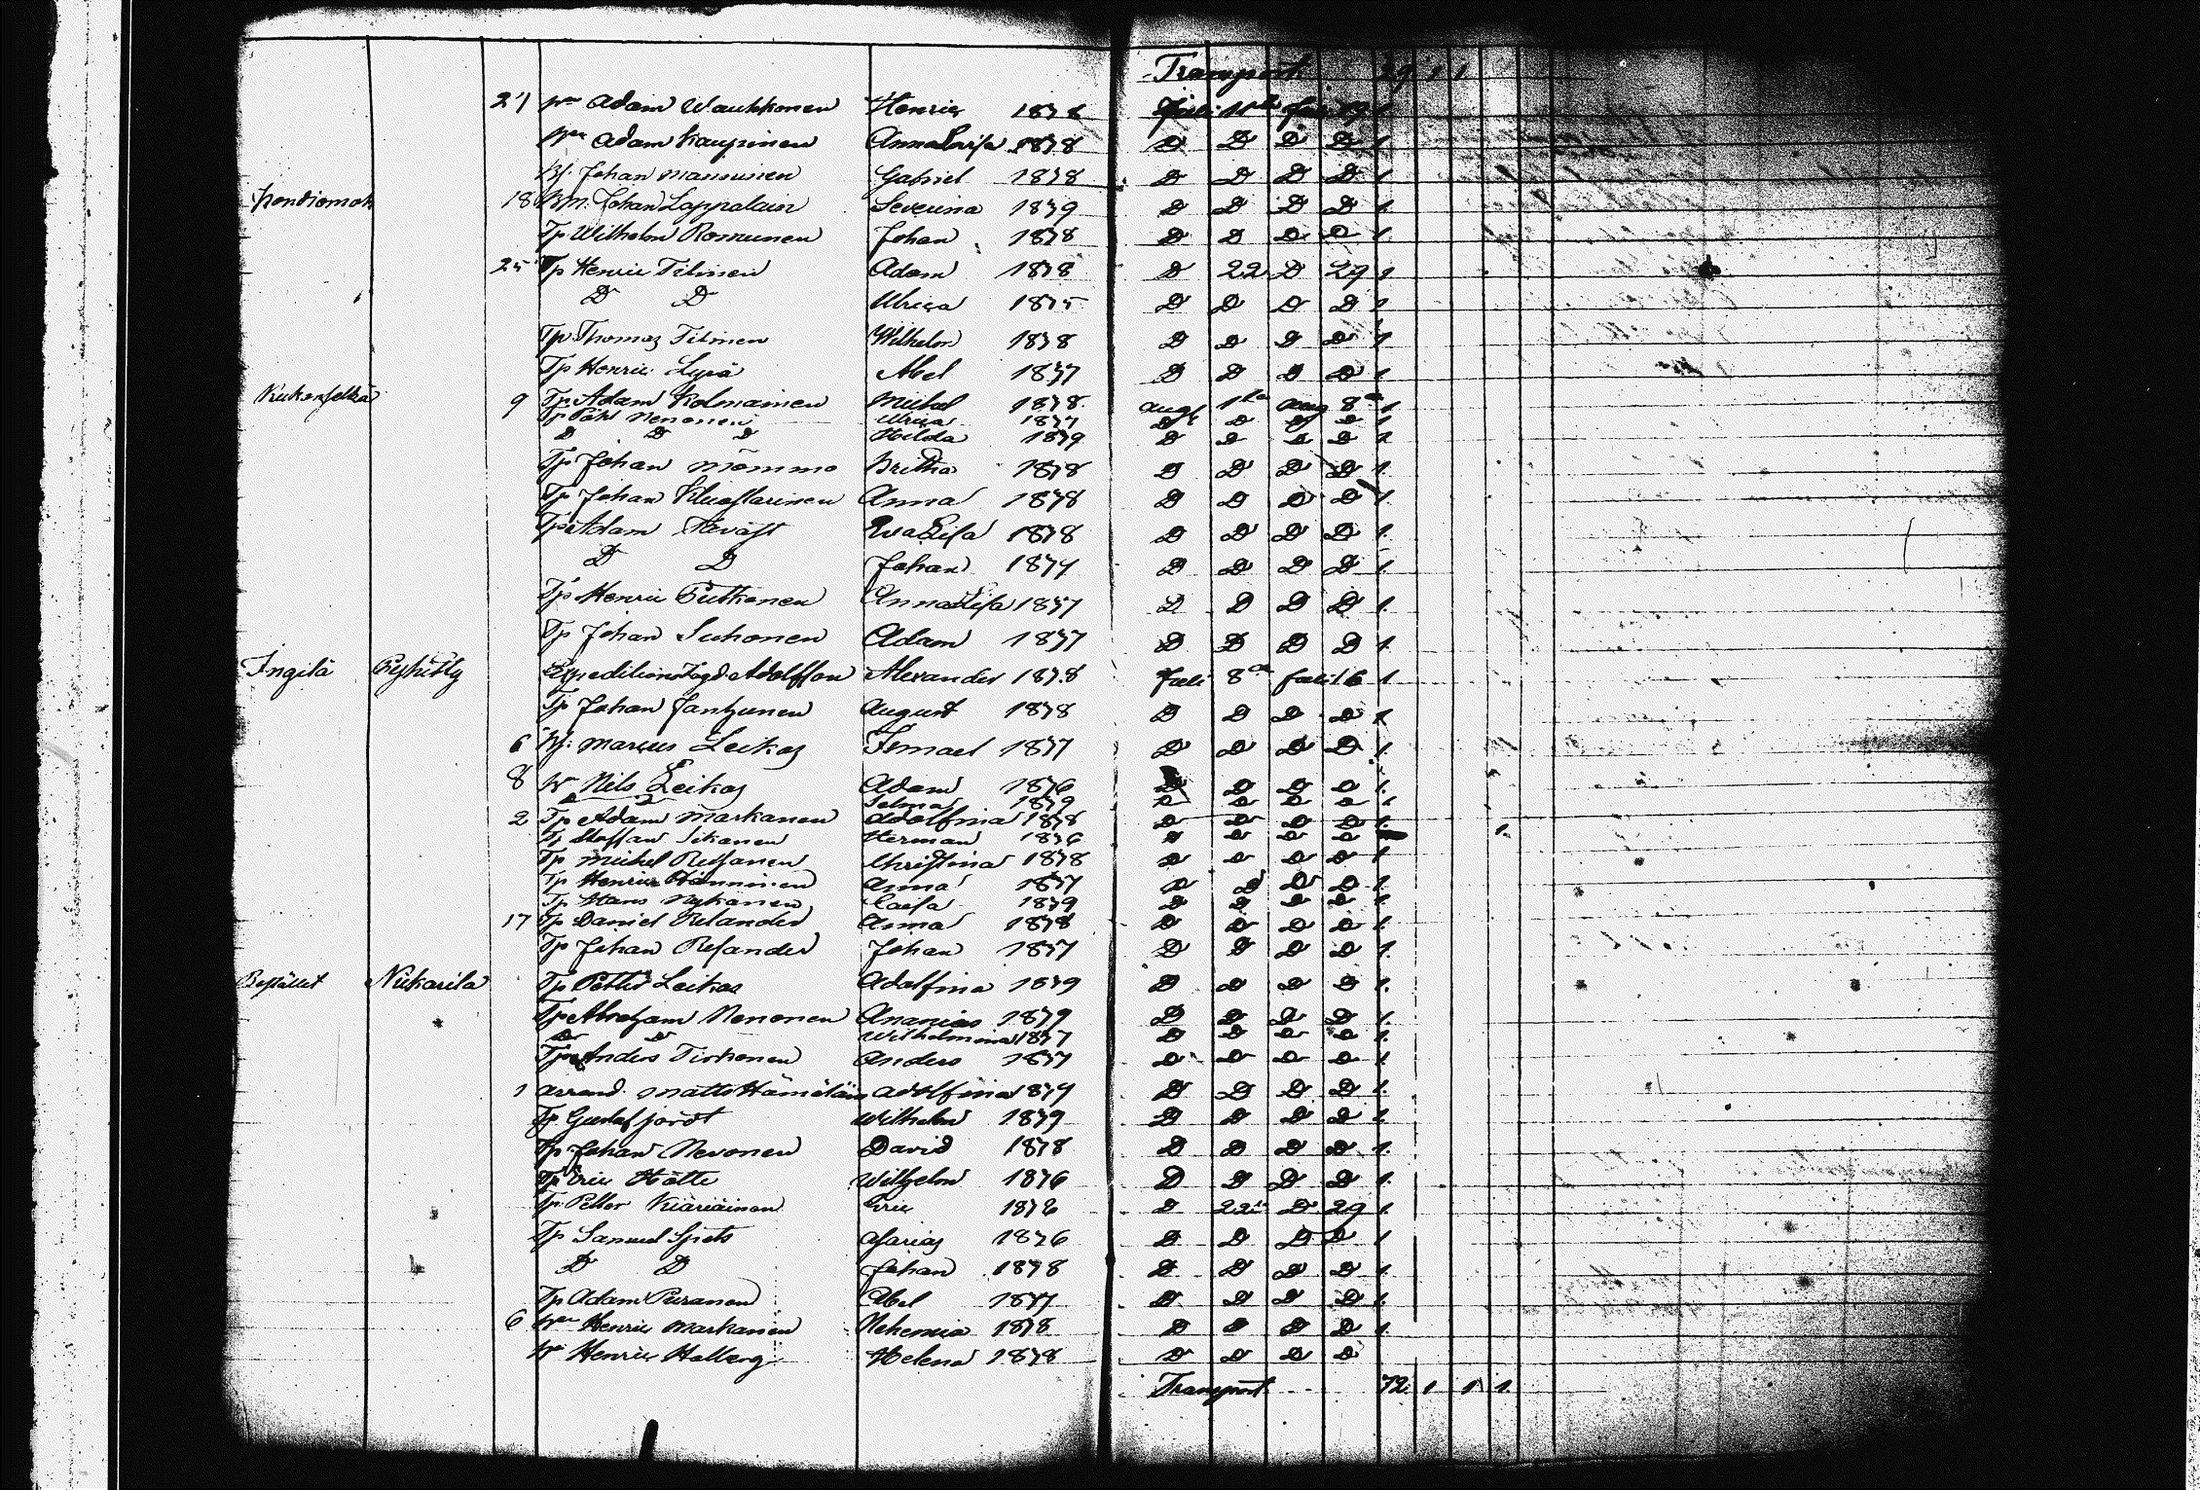 Transport 29 1 1
21 Adam Waukkonen Henric 1878 Juli 11 Juli 19 1
Adam Kaupinen Anna Lovisa 1878 D D D D 1
Johan Manninen Gabriel 1838 D D D D 1.
18 Johan Lappalain Severina 1839 D D D D 1.
Tp Wilhelm Romunen Johan 1838 D D D D 1.
25 Tp Henric Tilinen Adam 1838 D 22 D 29 1
D D Ulrica 1835 D D D D 1
Tp Thomas Tilinen Wilhelm 1838 D D D D 1
Tp Henric Lyrä Abel 1837 D D D D 1
9 Tp. Adam Kolmainen Mickel 1838 Augt 1 Aug 8 1
Tp Påhl Nenonen Ulrica 1837 D D D D 1
D D D Hilda 1839 D D D D 1.
Tp Johan Mömmö Bretha 1838 D D D D 1.
Tp Johan Anna 1838 D D D D 1.
Tp Adam Eva Lisa 1838 D D D D 1.
D D Johan 1834 D D D D 1.
Tp Henric Puttonen Anna Lisa 1837 D D D D 1.
Tp Johan Suhonen Adam 1837 D D D D 1.
Ingilä Alexander 1838 Juli 8 Juli 16 1
Tp Johan Jantunen August 1838 D D D D 1
6 Marcus Leikas Ismael 1837 D D D D 1.
8 Nils Leikas Adam 1836 D D D D 1.
D D Selma 1839 D D D D 1
2 Tp Adam Markanen Adolfina 1838 D D D D 1.
Tp Staffan Sikanen Herman 1836 D D D D 1.
Tp Mickel Reijanen Christina 1838 D D D D 1
Tp Henric Hänninen Anna 1837 D D D D 1.
Tp Hans Nykänen Caisa 1839 D D D D 1.
17 Tp Daniel Relander Anna 1838 D D D D 1.
Tp Johan Relander Johan 1837 D D D D 1.
Nukarila Tp Petter Leikas Adolfina 1839 D D D D 1.
Tp Abraham Nenonen Ananias 1839 D D D D 1.
D D Wilhelmina 1837 D D D D 1.
Tp Anders Tirkonen Anders 1837 D D D D 1.
1 Arrend. Matts Hämäläin Adolfina 1839 D D D D 1.
Tp Gustaf Jordt Wilhelm 1839 D D D D 1.
Tp Johan Nevonen David 1838 D D D D 1.
Tp Eric Hätte Wilhelm 1836 D D D D 1.
Tp Petter Kiäriäinen Eric 1836 D 22 D 29 1.
Tp Samuel Spets Asarias 1836 D D D D 1
D D Johan 1838 D D D D 1.
Tp Adam Puranen Abel 1837 D D D D 1.
6 Henric Markanen Nehemia 1838 D D D D 1.
Henric Hallberg Helena 1838 D D D D
Transport 72 1 1 1